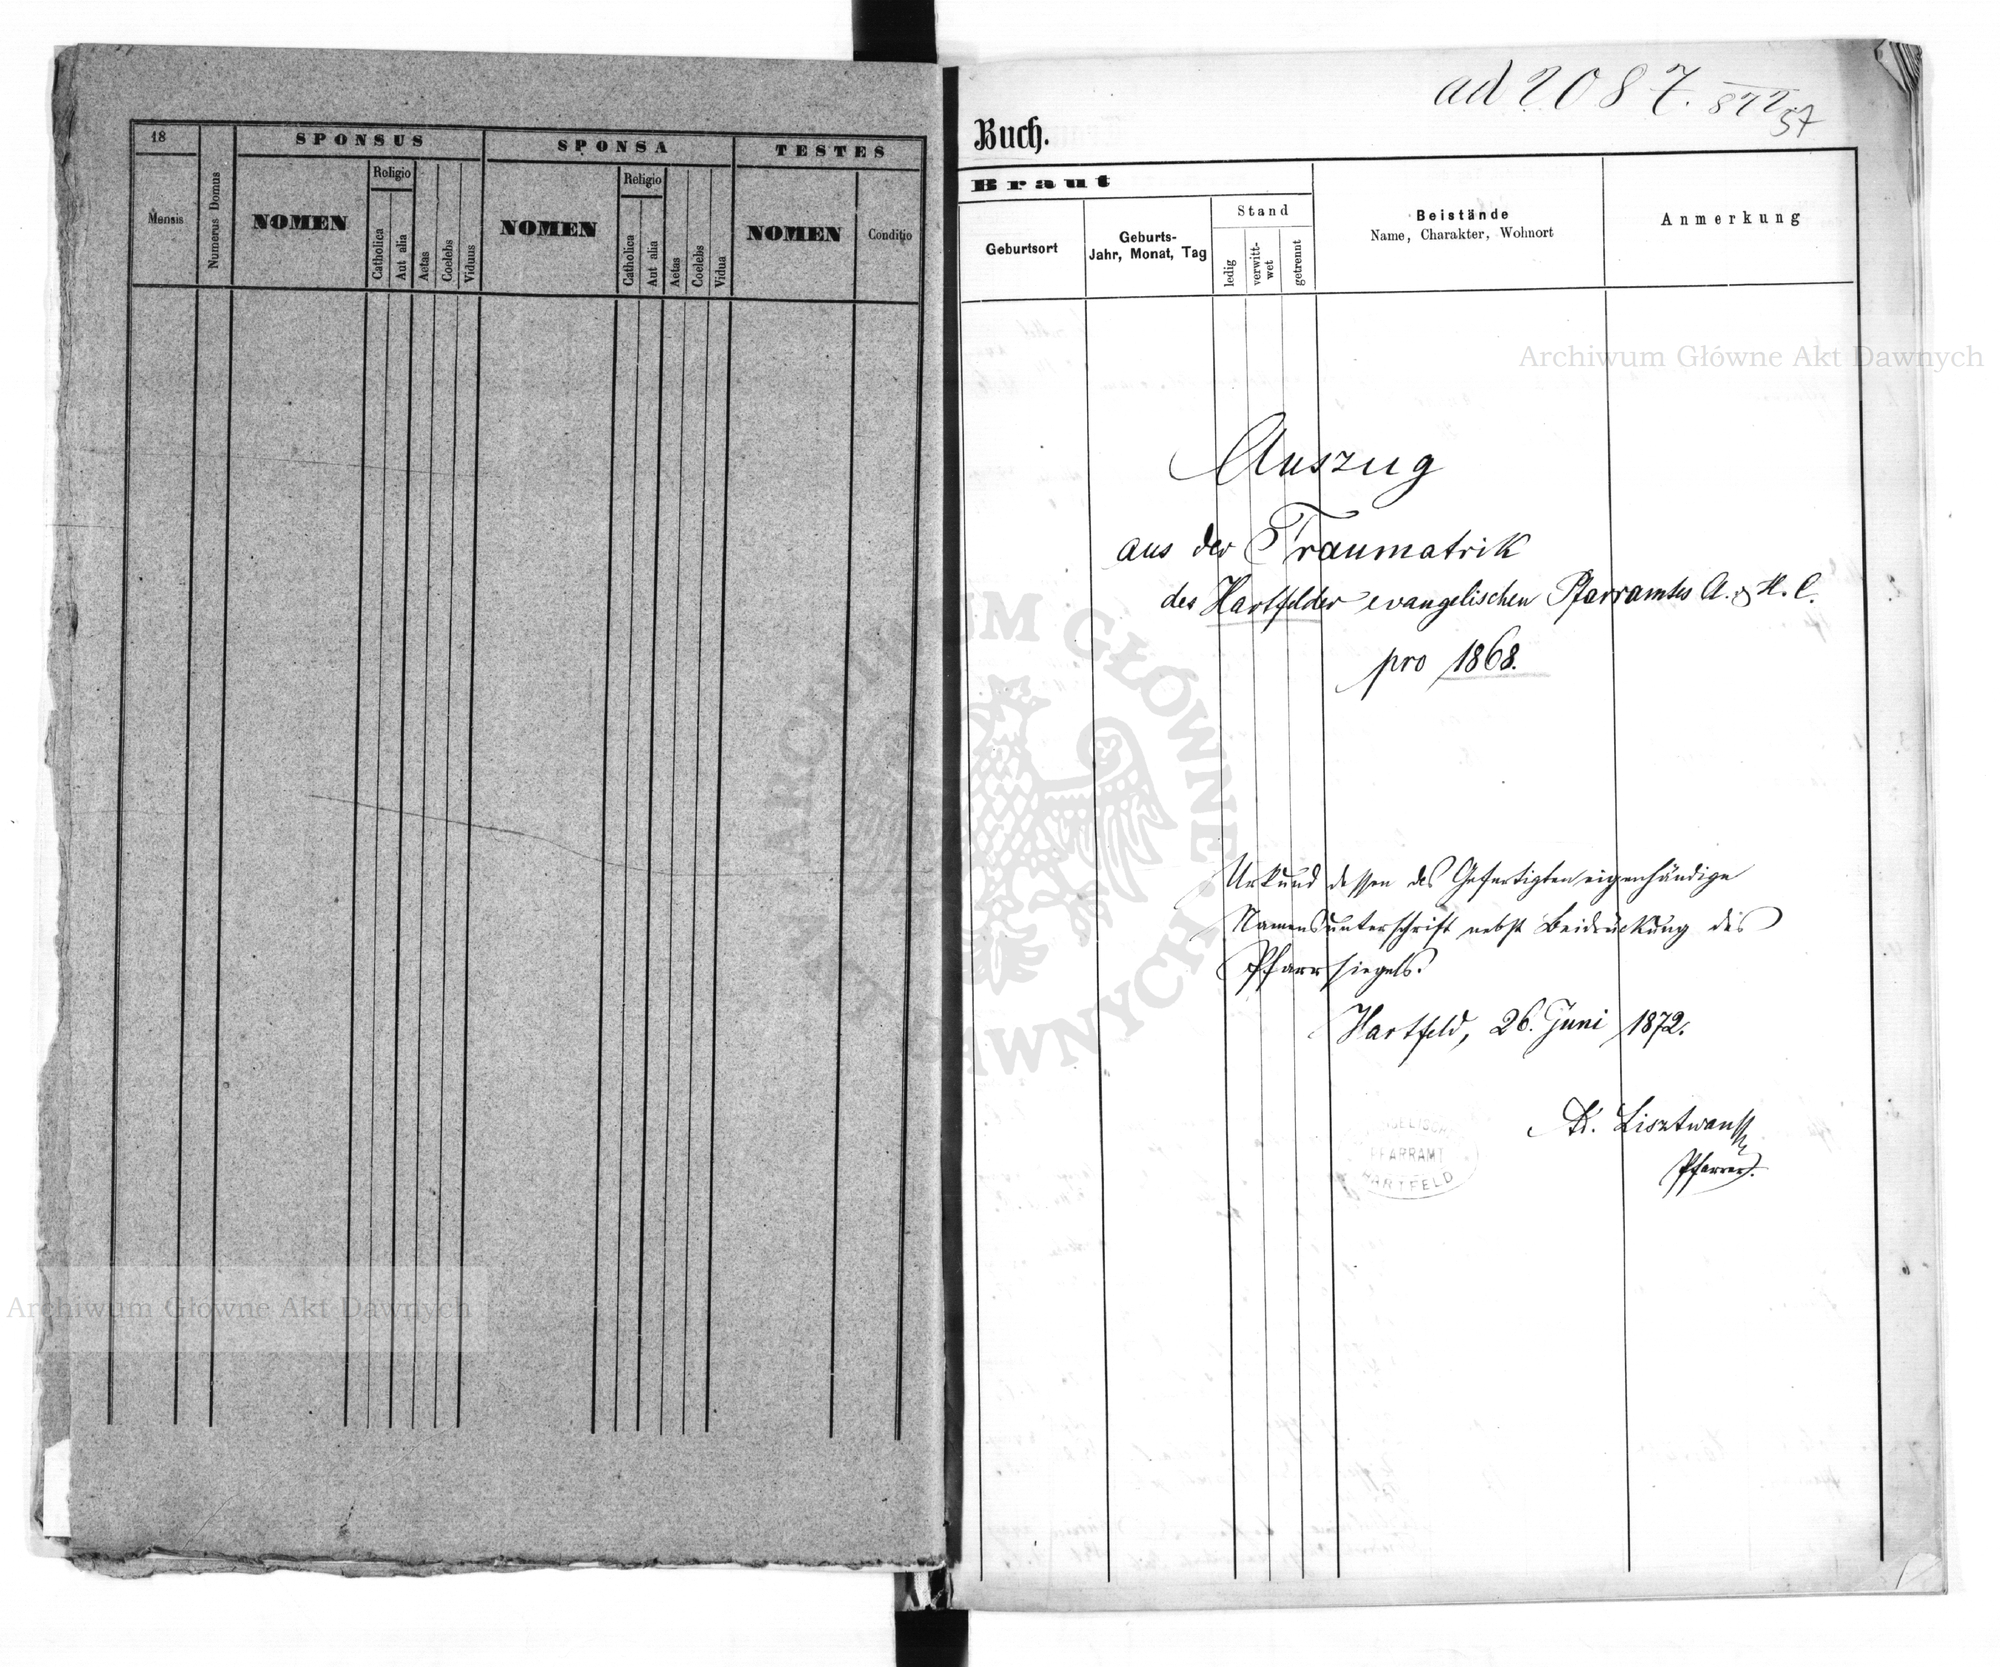 18
SPONSUS
SPONSA
TESTES
Mensis
Numerus Domus
NOMEN
Religio
Catholica
Aut alia
Aetas
Coelebs
Viduus
NOMEN
Religio
Catholica
Aut alia
Aetas
Coelebs
Vidua
NOMEN
Conditio
ad 2087. 872
57
Buch.
Braut
Geburtsort
Geburts-
Jahr, Monat, Tag
Stand
ledig
verwitt-
wet
getrennt
Beistände
Name, Charakter, Wohnort
Anmerkung
Archiwum Główne Akt Dawnych
Auszug
aus der Traumatrik
des Hartfelder evangelischen Pfarramtes A. & H. C.
pro 1868.
ARCHIWUM GŁÓWNE AKT DAWNYCH
Urkund dessen des Gefertigten eigenhändige
Namensunterschrift nebst Beidrückung des
Pfarrsiegels.
Hartfeld, 26. Juni 1872.
Lisztwan
Pfarrer.
PFARRAMT
HARTFELD
Archiwum Głowne Akt Dawnych